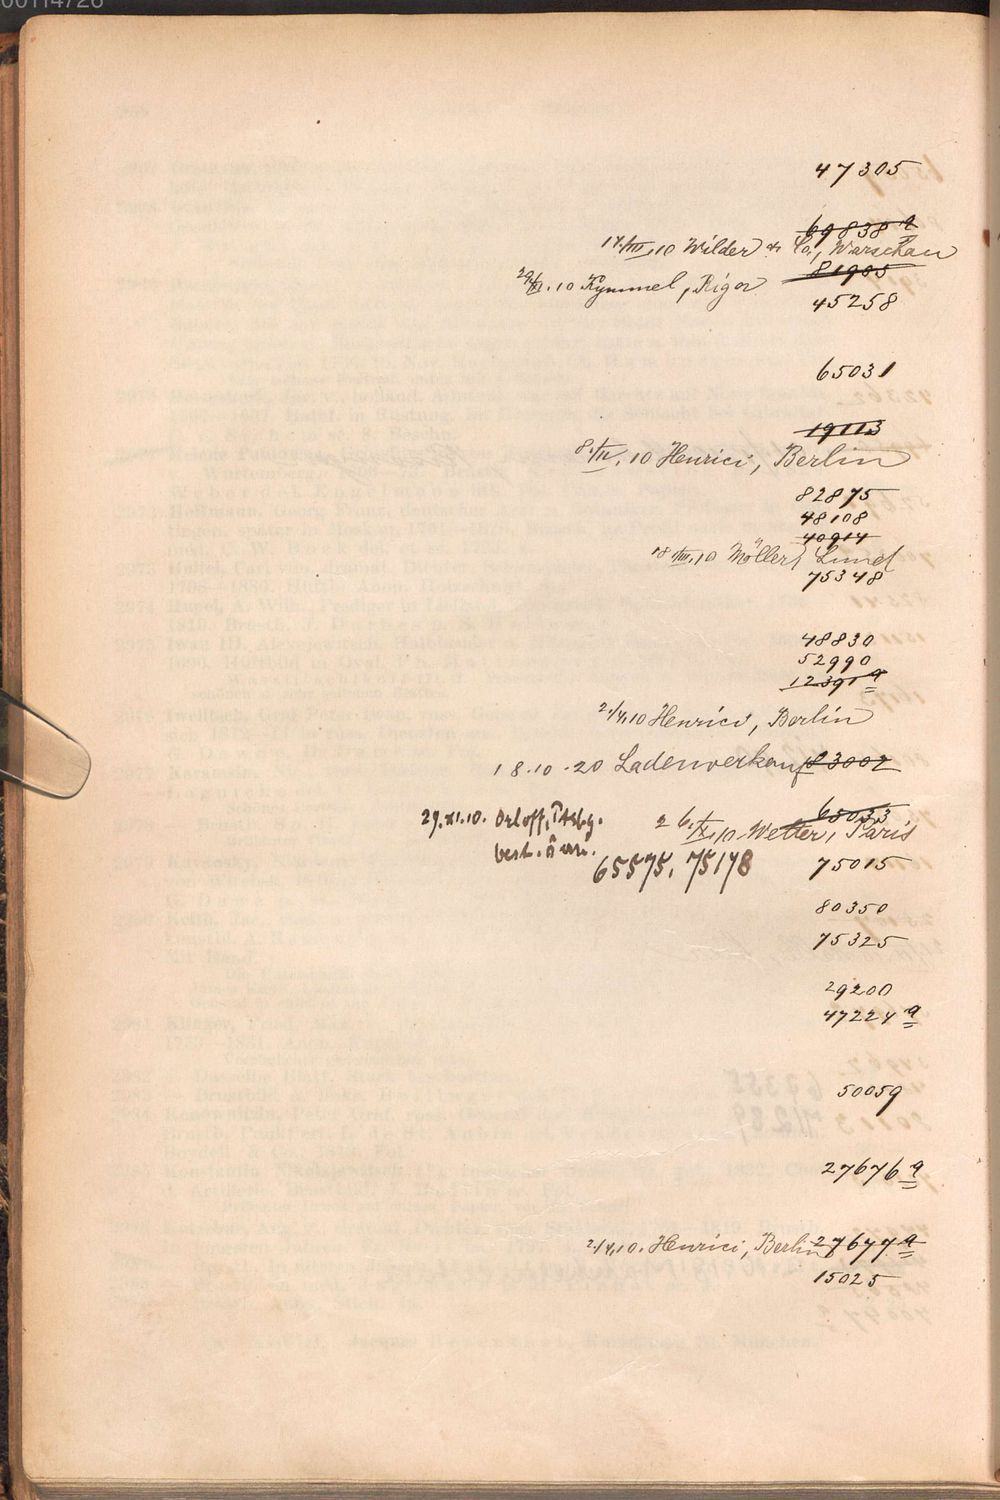 00114726
47305
69838 a
17/III.10 Wilder & Co., Warschau
81905
29/XI.10 Kymmel, Riga
45258
65031
19113
8./III.10 Henrici, Berlin
82875
48108
40914
18/III.10 Möller, Lund
75348
48830
52990
12391 a
2/V.10 Henrici, Berlin
18.10.20 Ladenverkauf 23002
65033
29.XI.10. Orloff, Ptsbg. 26./IX.10 Welter, Paris
best.
65575, 75178 75015
80350
75325
29200
47224 a
50059
27676 a
2/V.10. Henrici, Berlin 27677 a
15025